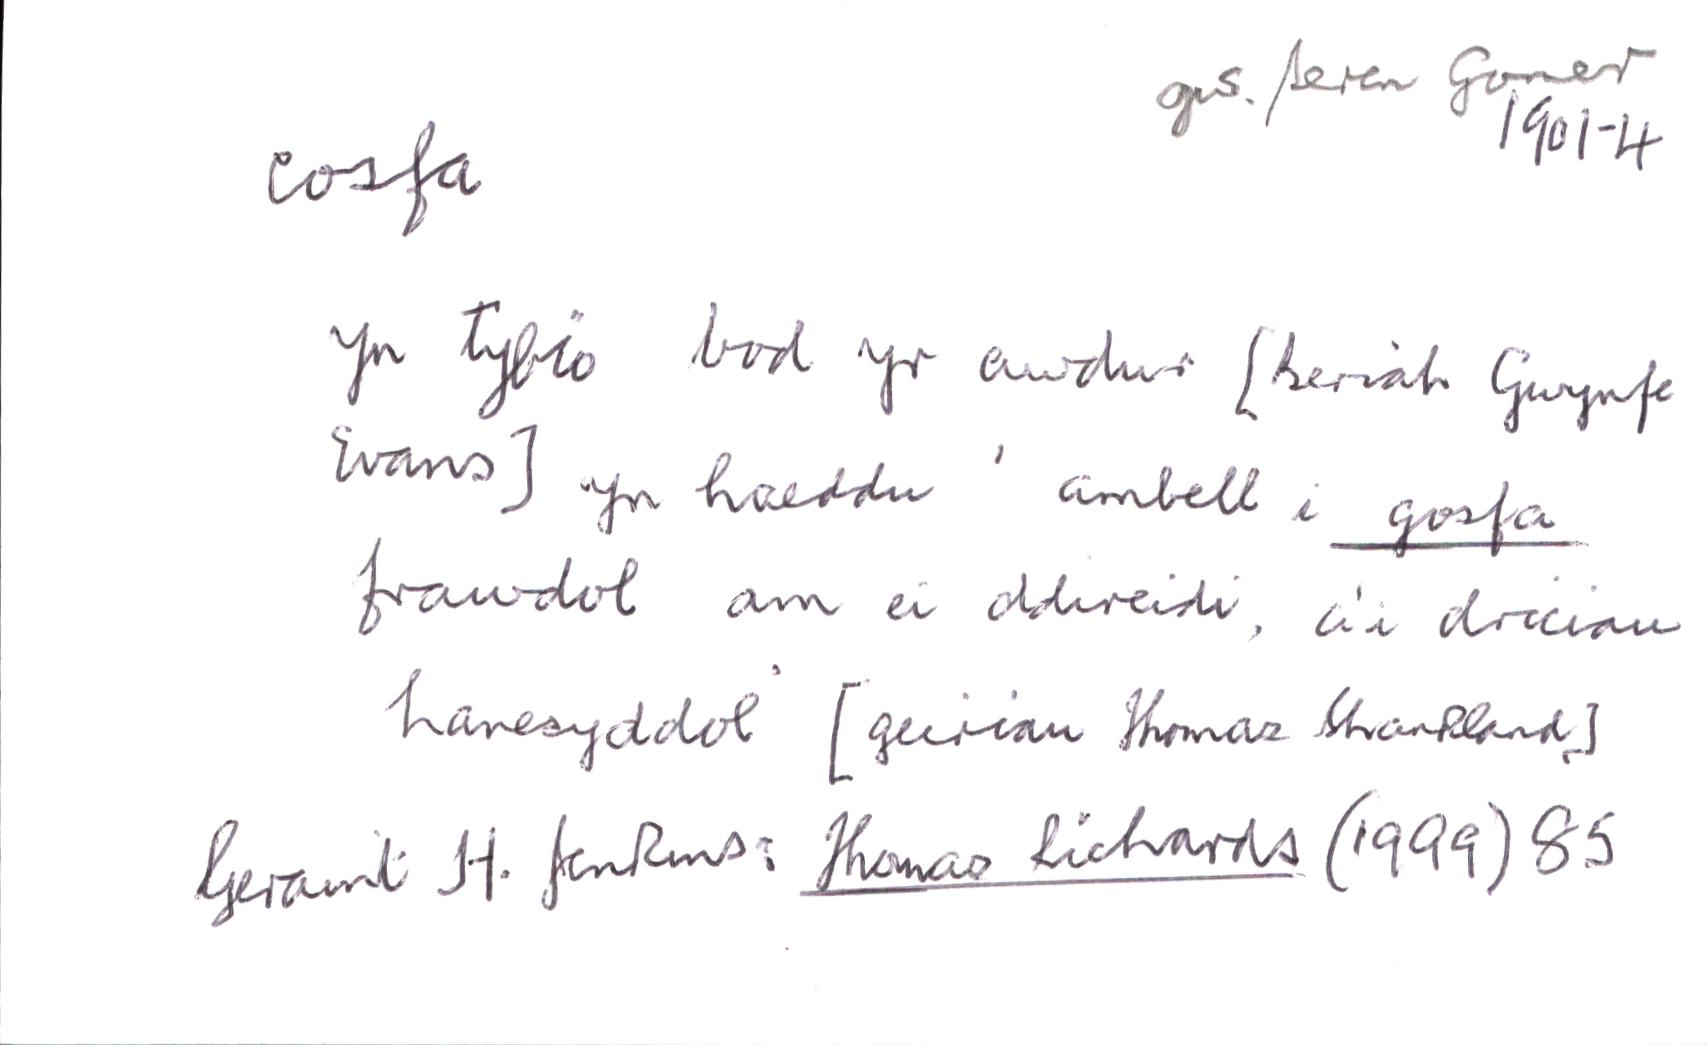 gw. Seren Gomer
1901-4
cosfa
yn tybio bod yr awdur [Beriah Gwynfe
Evans] yn haeddu 'ambell i gosfa
frawdol am ei ddireidi, a'i driciau
hanesyddol' [geiriau Thomas Shankland]
Geraint H. Jenkins: Thomas Richards (1999) 85